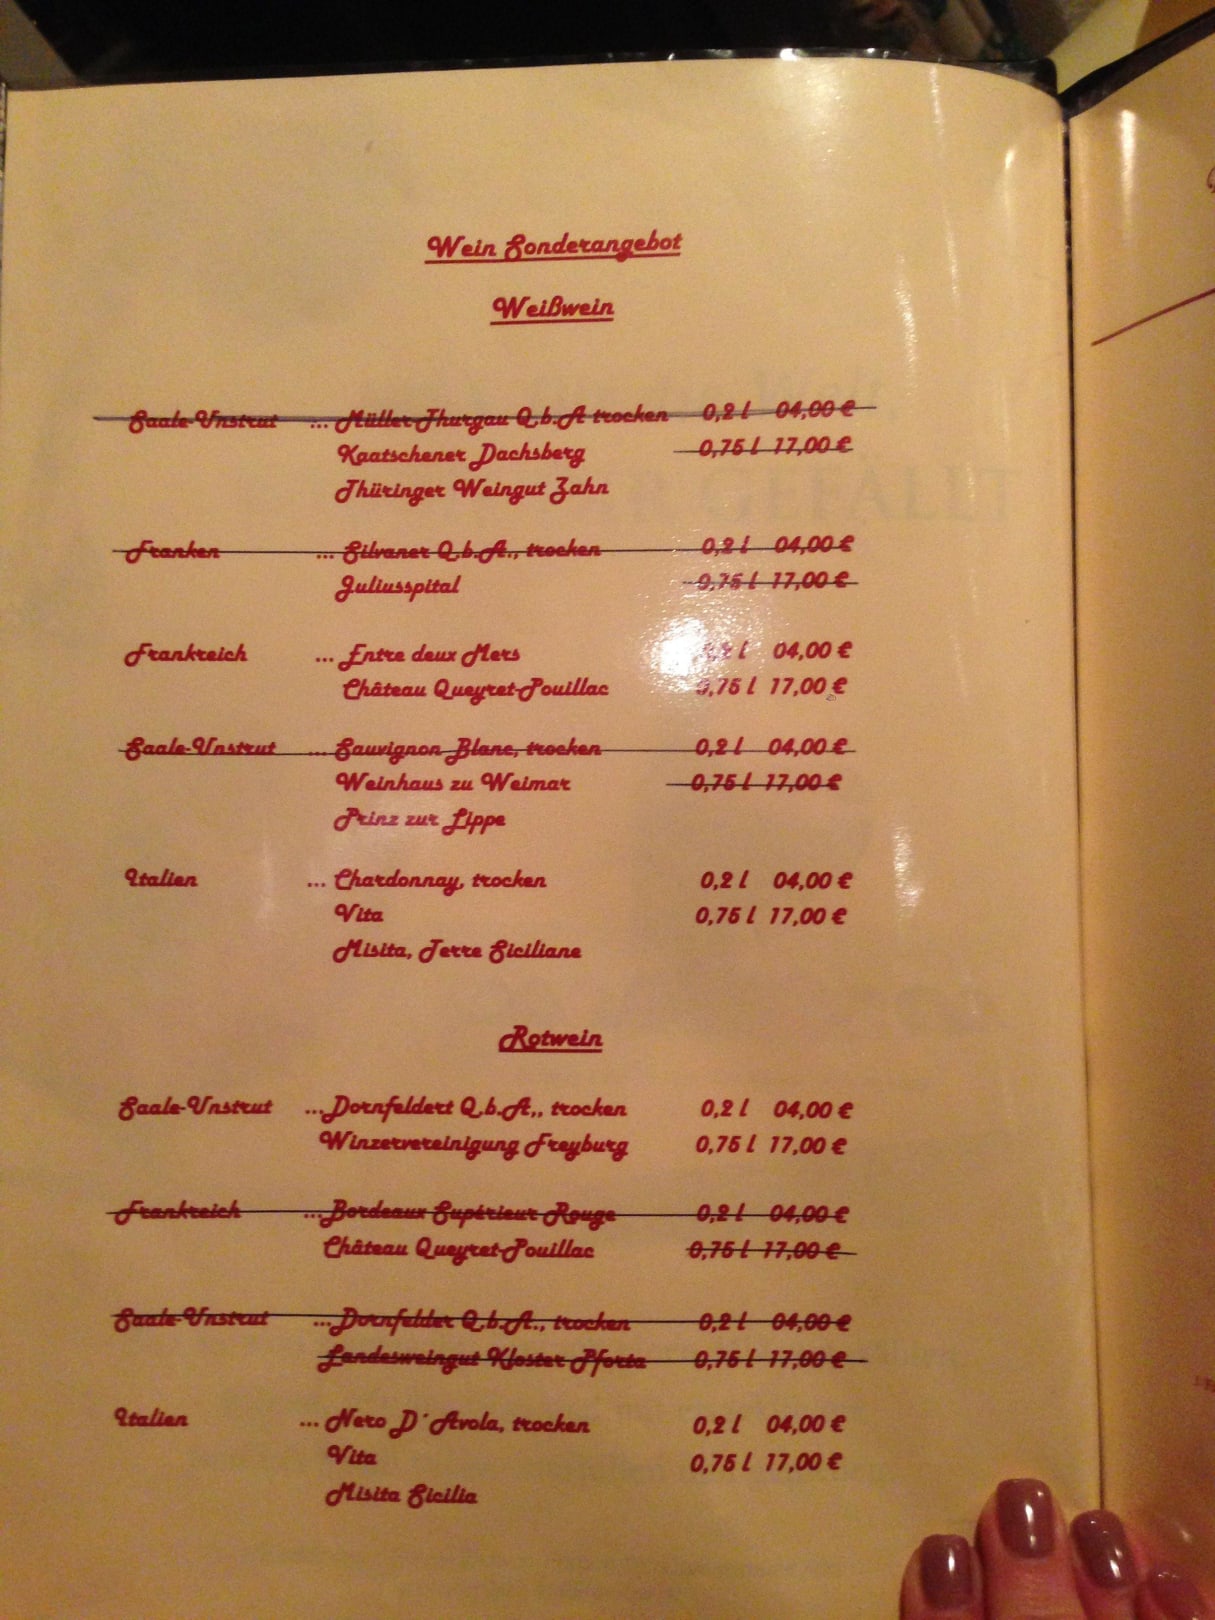 Wein Sonderangebot
Weißwein
Saale-Unstrut ... Müller-Thurgau Q.b.A trocken 0,2 l 04,00 €
Kaatschener Dachsberg 0,75 l 17,00 €
Thüringer Weingut Zahn
Franken ... Silvaner Q.b.A., trocken 0,2 l 04,00 €
Juliusspital 0,75 l 17,00 €
Frankreich ... Entre deux Mers 0,2 l 04,00 €
Château Queyret-Pouillac 0,75 l 17,00 €
Saale-Unstrut ... Sauvignon Blanc, trocken 0,2 l 04,00 €
Weinhaus zu Weimar 0,75 l 17,00 €
Prinz zur Lippe
Italien ... Chardonnay, trocken 0,2 l 04,00 €
Vita 0,75 l 17,00 €
Misita, Terre Siciliane
Rotwein
Saale-Unstrut ...Dornfeldert Q.b.A,, trocken 0,2 l 04,00 €
Winzervereinigung Freyburg 0,75 l 17,00 €
Frankreich ...Bordeaux Supérieur Rouge 0,2 l 04,00 €
Château Queyret-Pouillac 0,75 l 17,00 €
Saale-Unstrut ...Dornfelder Q.b.A., trocken 0,2 l 04,00 €
Landesweingut Kloster Pforta 0,75 l 17,00 €
Italien ... Nero D´Avola, trocken 0,2 l 04,00 €
Vita 0,75 l 17,00 €
Misita Sicilia